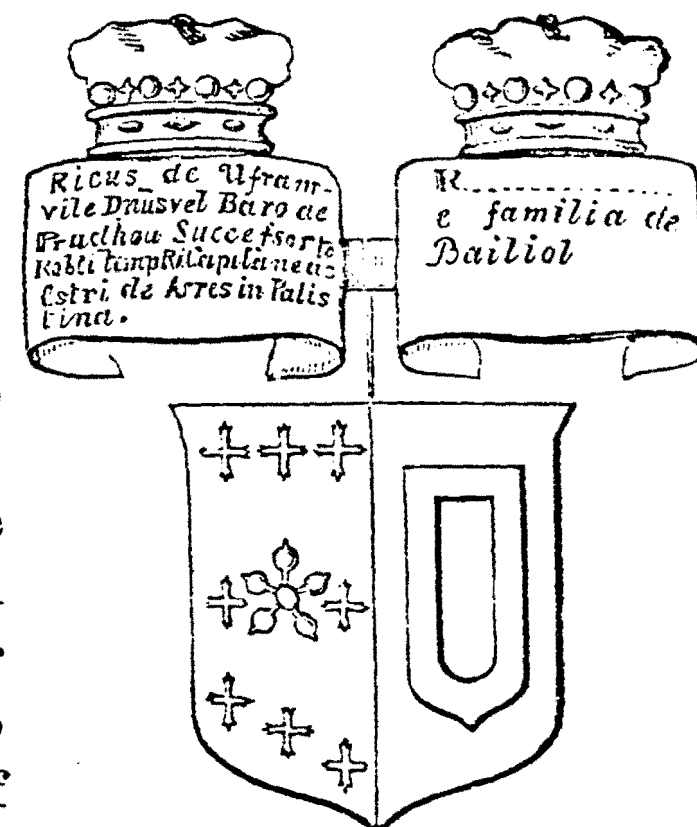 Ricus de Ufram-
vile Dnus vel Baro de
Prudhou Successor to
Robti temp Ri Capitaneas
Cstri de Arres in Palis
tina.
R
e familia de
Bailiol